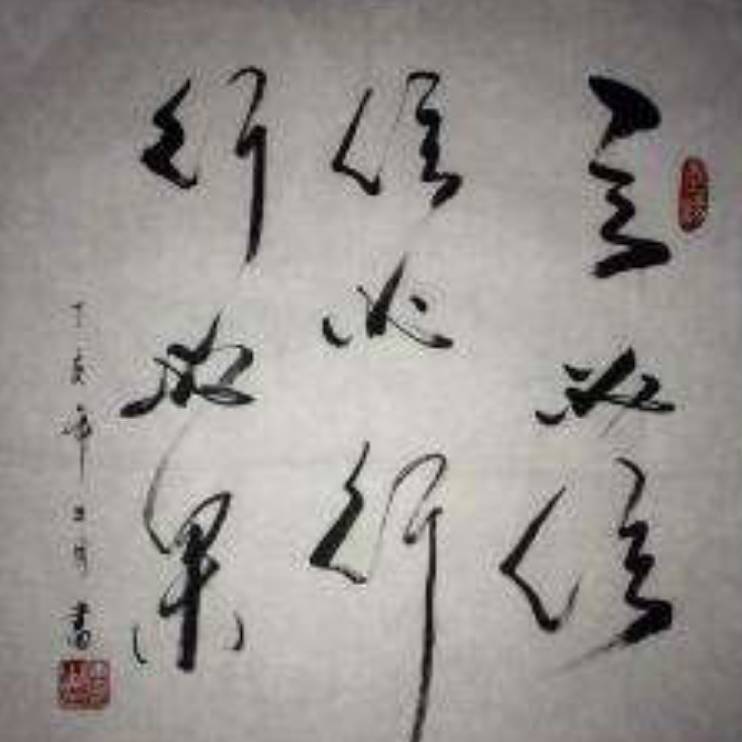 言必信
信必行
行必果
丁亥年
月书